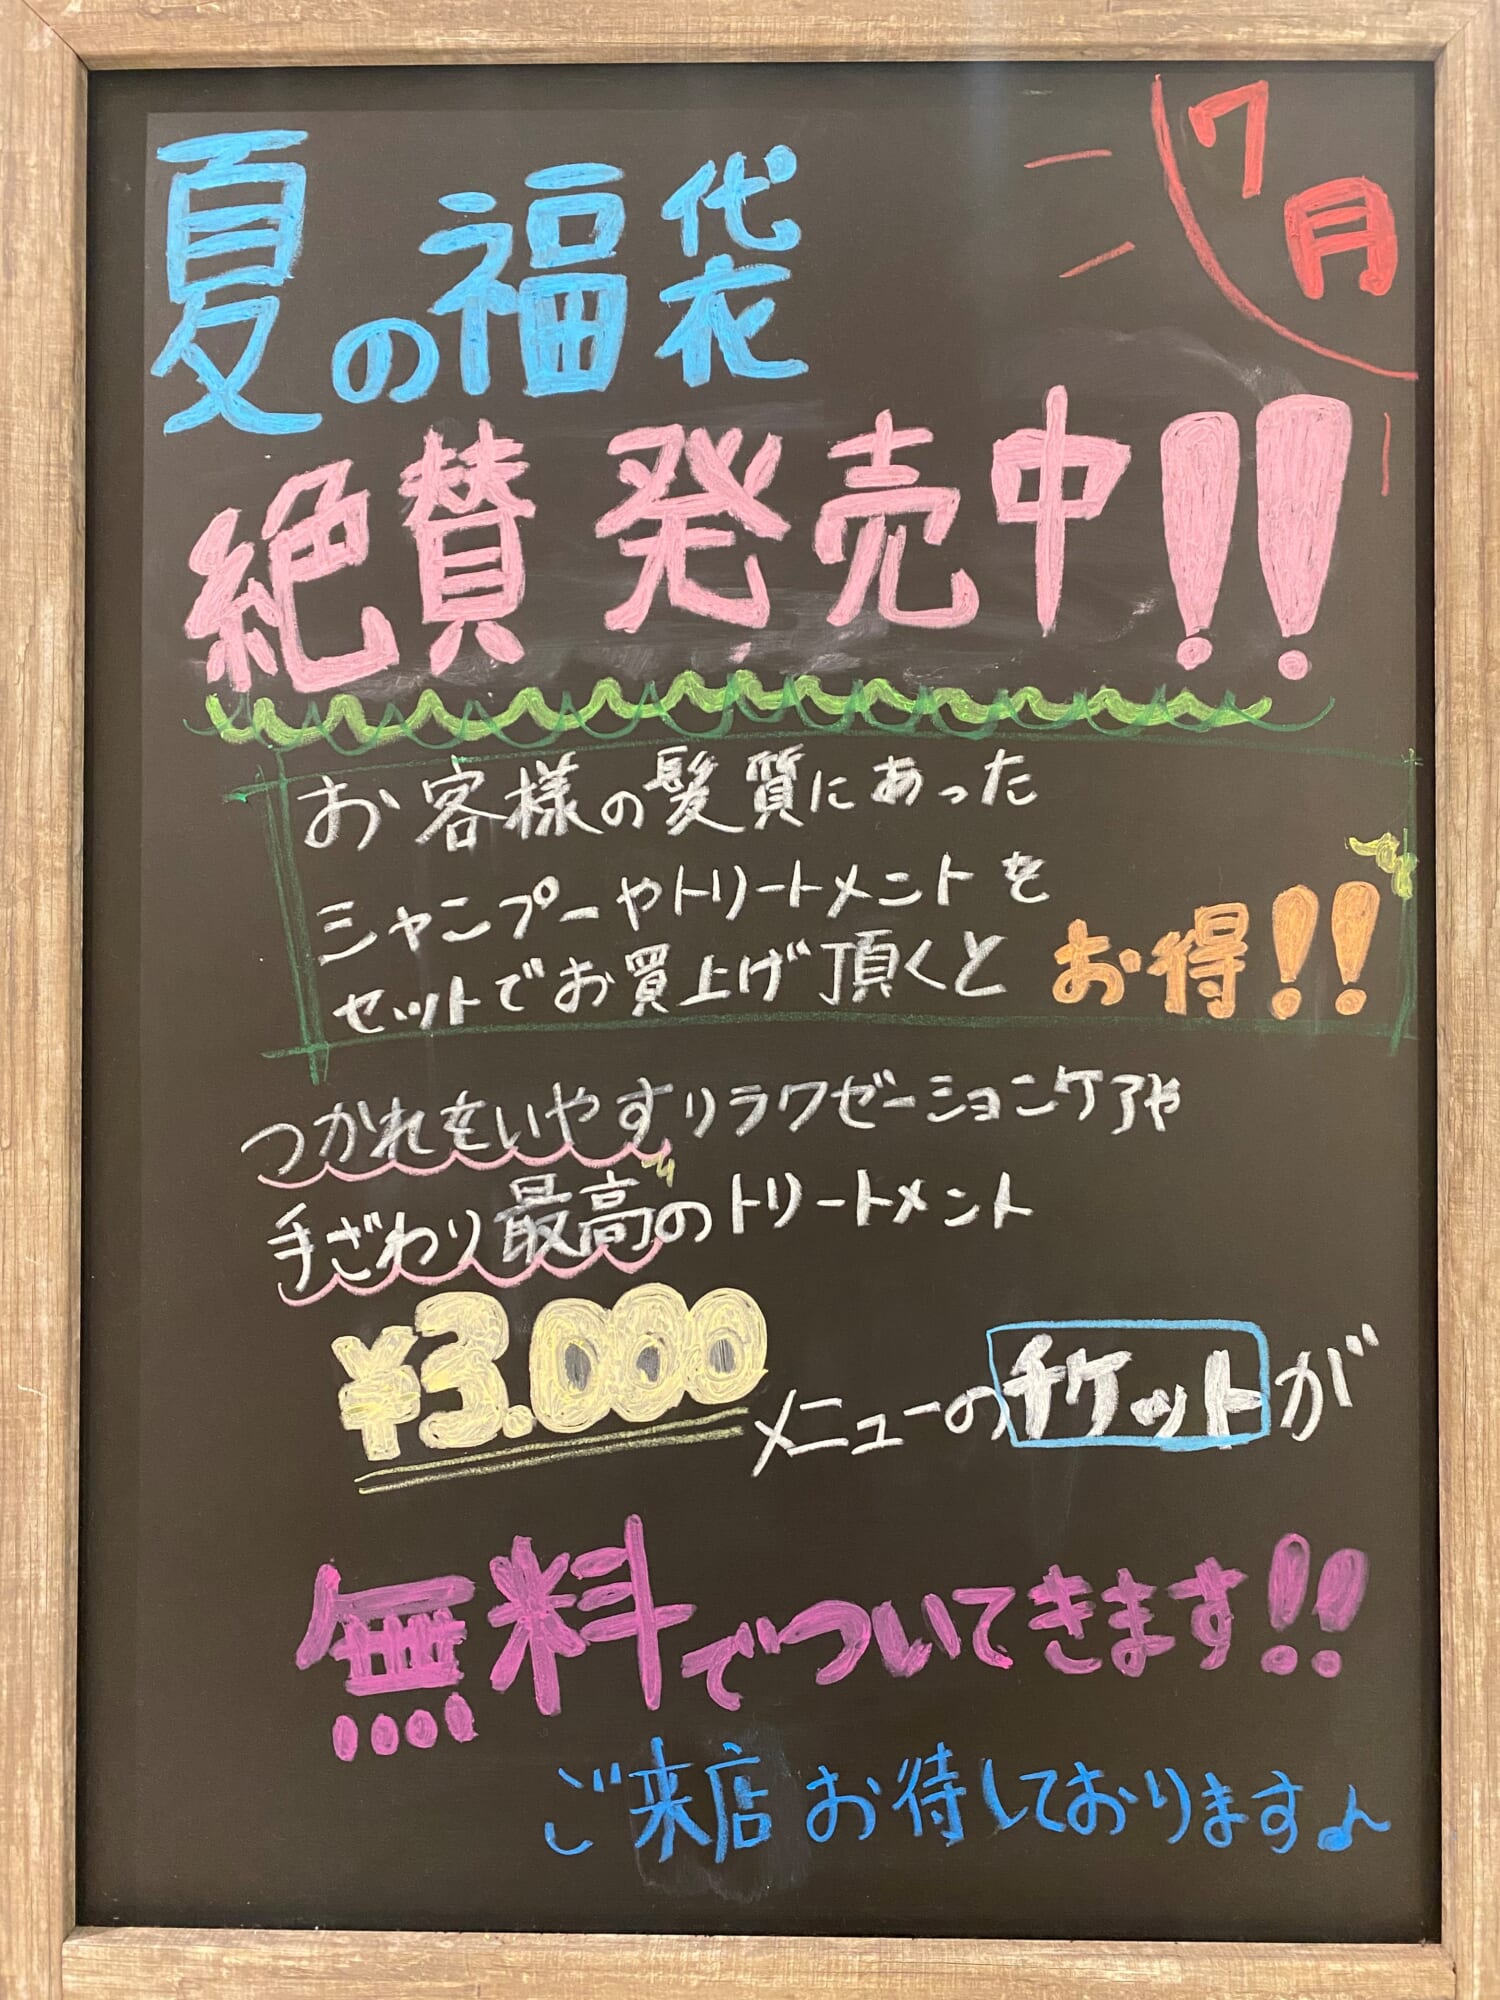 7月
夏の福袋
絶賛発売中!!
お客様の髪質にあった
シャンプーやトリートメントを
セットでお買上げ頂くとお得!!
つかれをいやすリラクゼーションケアや
手ざわり最高のトリートメント
¥3.000メニューのチケットが
無料でついてきます!!
ご来店お待しております♪